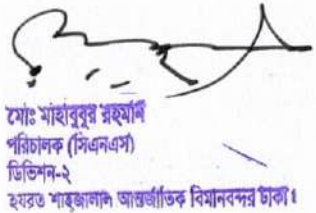 মোঃ মাহাবুবুর রহমান
পরিচালক (সিএনএস)
ডিভিশন-২
হযরত শাহজালাল আন্তর্জাতিক বিমানবন্দর ঢাকা।